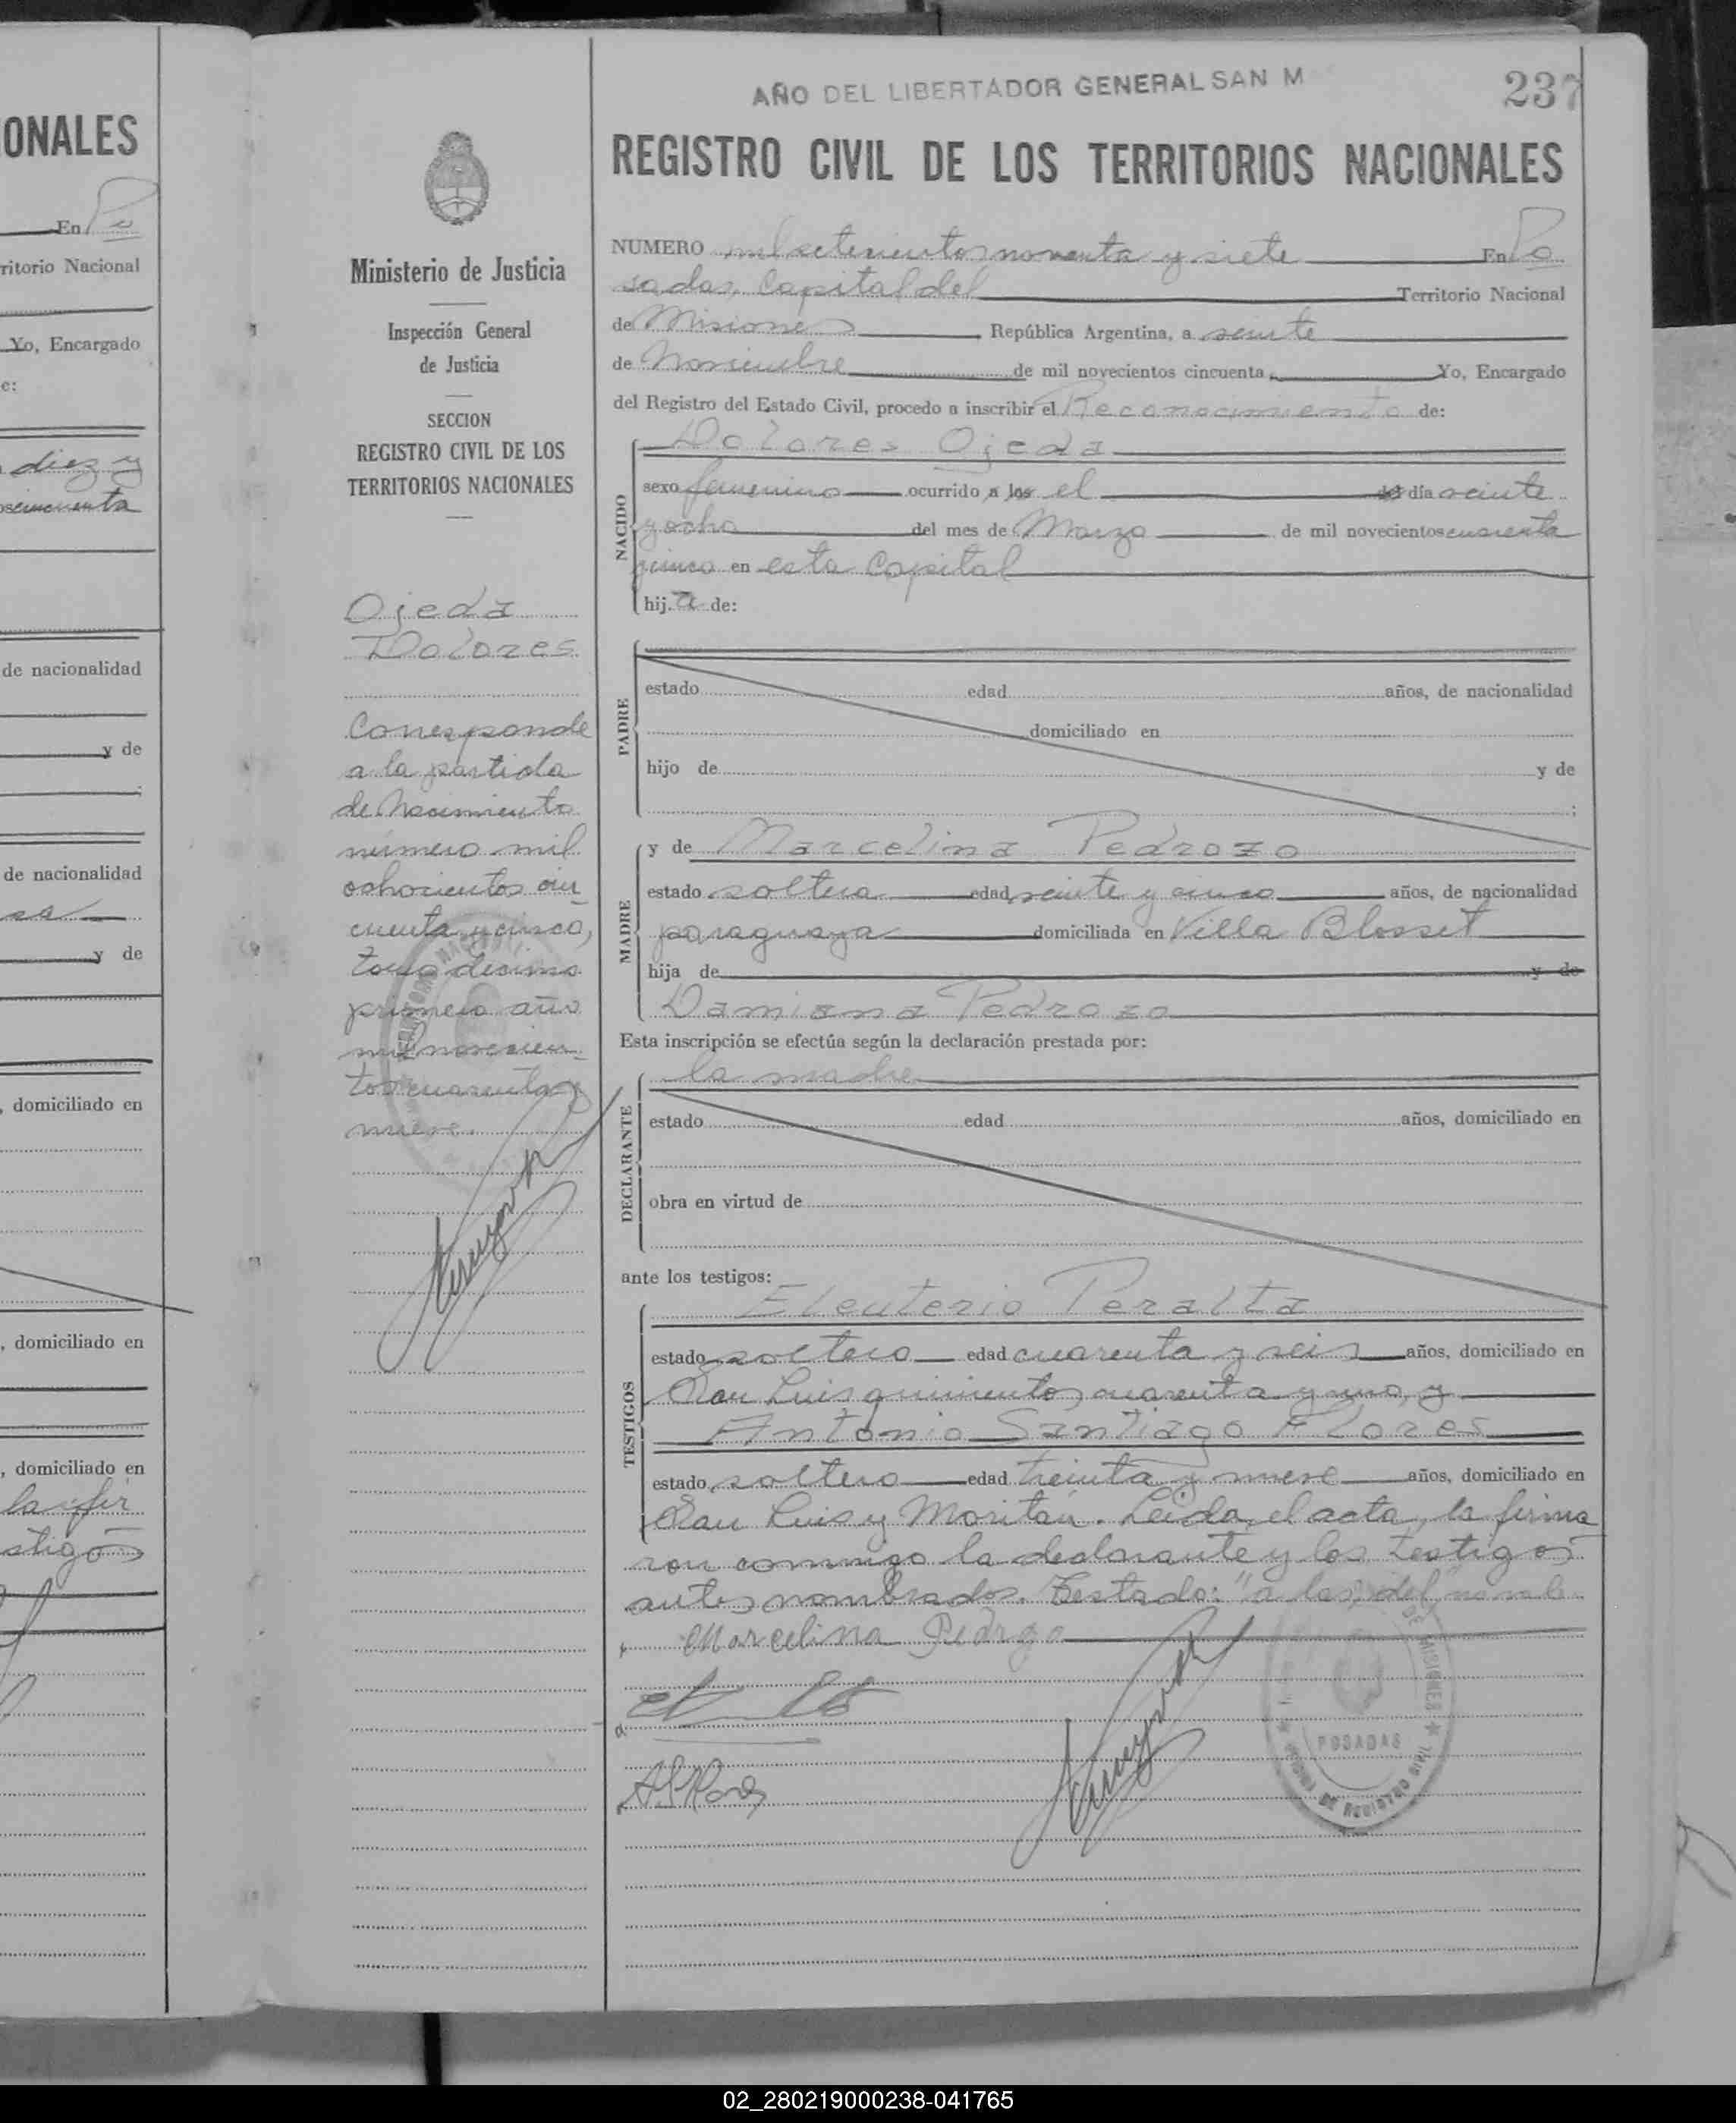 ONALES
En Po
ritorio Nacional
Yo, Encargado
e:
diez y
oscincuenta
de nacionalidad
y de
de nacionalidad
y de
, domiciliado en
, domiciliado en
, domiciliado en
la fir
stigos
Ministerio de Justicia
Inspección General
de Justicia
SECCION
REGISTRO CIVIL DE LOS
TERRITORIOS NACIONALES
Ojeda
Dolores
Corresponde
a la partida
de Nacimiento
número mil
ochocientos cin
cuenta y cinco,
tomo décimo
primero año
mil novecien-
tos cuarenta y
nueve.
AÑO DEL LIBERTADOR GENERAL SAN M
237
REGISTRO CIVIL DE LOS TERRITORIOS NACIONALES
NUMERO mil setecientos noventa y siete En Po
sadas, Capital del Territorio Nacional
de Misiones República Argentina, a veinte
de Noviembre de mil novecientos cincuenta Yo, Encargado
del Registro del Estado Civil, procedo a inscribir el Reconocimiento de:
Dolores Ojeda
NACIDO
sexo femenino ocurrido a las el del día veinte
y ocho del mes de Marzo de mil novecientos cuarenta
cinco en esta Capital
hij a de:
PADRE
estado edad años, de nacionalidad
domiciliado en
hijo de y de
;
y de Marcelina Pedrozo
MADRE
estado soltera edad veinte y cinco años, de nacionalidad
paraguaya domiciliada en Villa Blosset
hija de y de
Damiana Pedrozo
Esta inscripción se efectúa según la declaración prestada por:
la madre
DECLARANTE
estado edad años, domiciliado en
obra en virtud de
ante los testigos:
Eleuterio Peralta
TESTIGOS
estado soltero edad cuarenta y seis años, domiciliado en
San Luis quinientos cuarenta y uno, y
Antonio Santiago Flores
estado soltero edad treinta y nueve años, domiciliado en
San Luis y Moritán. Leida el acta, la firma
ron conmigo la declarante y los testigos
antes nombrados. Testado: "a las, del" no vale
Marcelina Pedrozo
A S Flores
DE MISIONES
POSADAS
OFICINA DE REGISTRO CIVIL
02_280219000238-041765